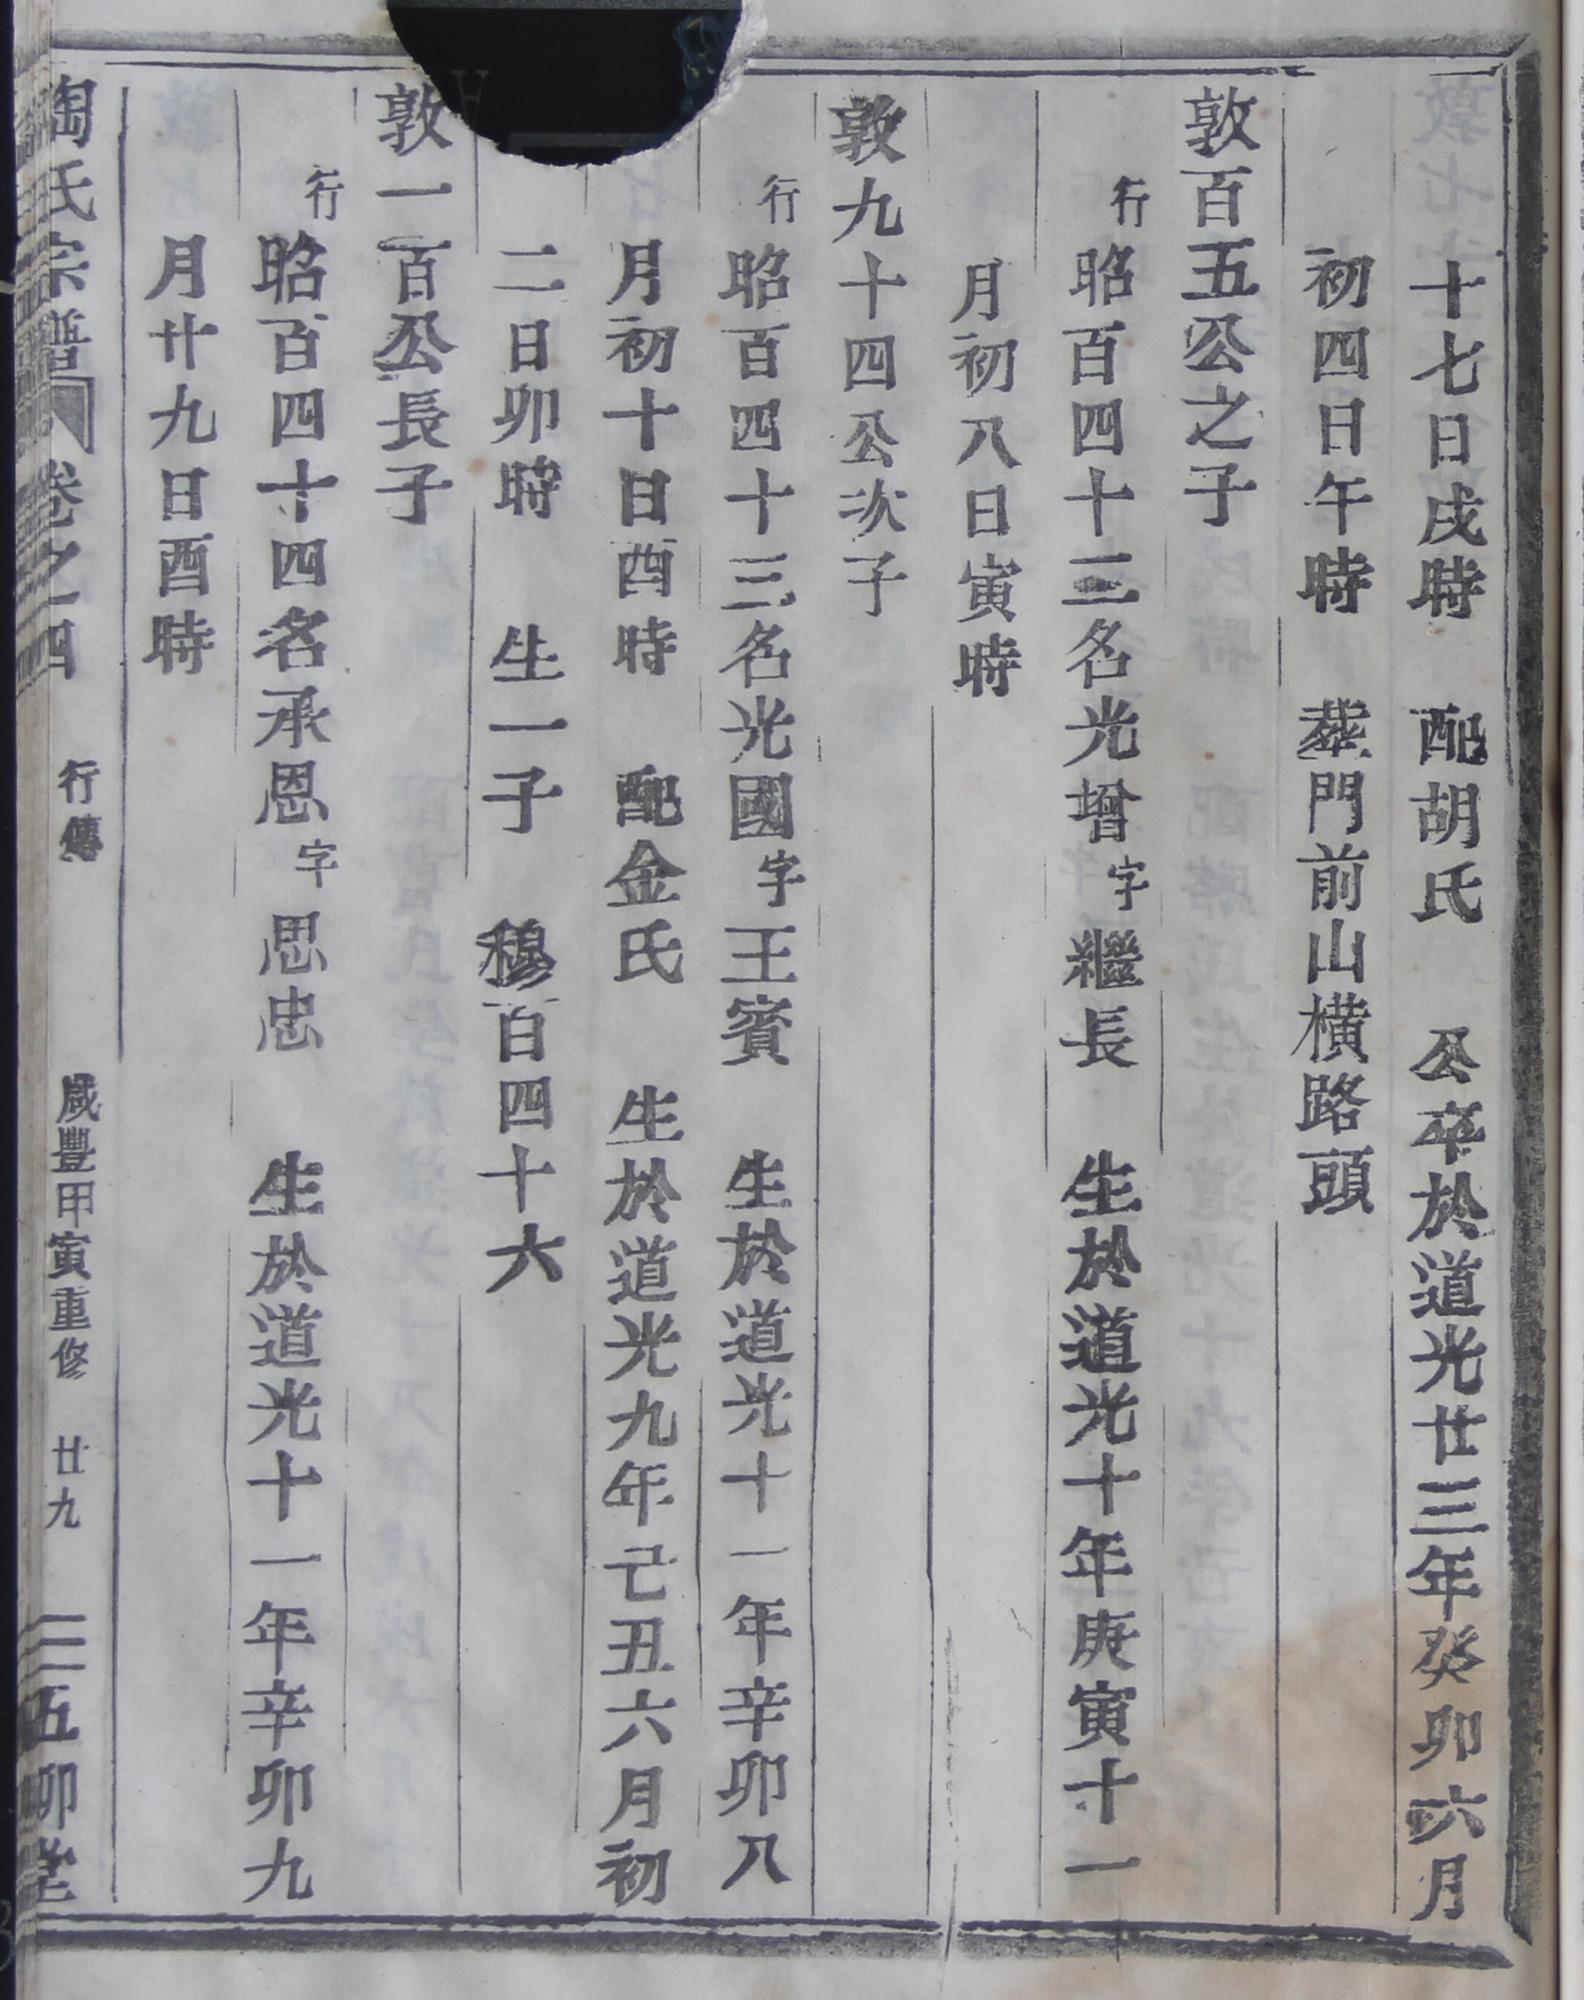 十七日戌時 配胡氏 公卒於道光廿三年癸卯六月
初四日午時 葬門前山橫路頭
敦百五公之子
行昭百四十三名光增字繼長 生於道光十年庚寅十一
月初八日寅時
敦九十四公次子
行昭百四十三名光國字王賓 生於道光十一年辛卯八
月初十日酉時 配金氏 生於道光九年己丑六月初
二日卯時 生一子 穆百四十六
敦一百公長子
行昭百四十四名承恩字思忠 生於道光十一年辛卯九
月廿九日酉時
陶氏宗譜 卷之四 行傳 咸豐甲寅重修 廿九 五柳堂